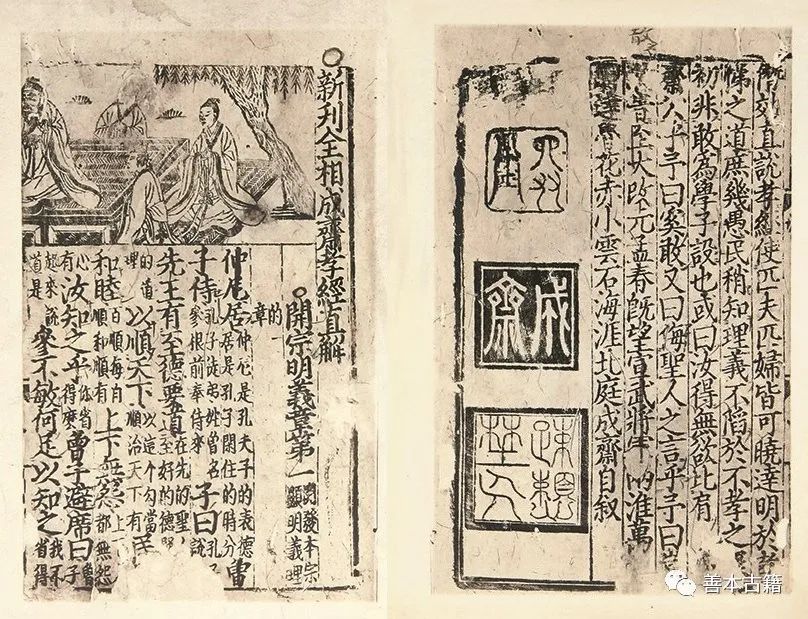 俗効直說孝經使匹夫匹婦皆可曉達明於孝
悌之道庶幾愚民稍知理義不陷於不孝之
初非敢為學子設也或曰汝得無欲比有
齋公乎予曰奚敢又曰侮聖人之言乎予曰豈
至大改元孟春既望宣武將軍兩淮萬
達魯花赤小雲石海涯北庭成齋自叙
成齋
疎嬾埜人
新刋全相成齋孝經直解
開宗明義章第一 開發本宗顯明義理
的一章
仲尼居 仲尼是孔夫子的表德居是孔子閑住的時分 曾
子侍 孔子徒弟姓曾名參根前奉侍來 子曰 孔子說
先王有至德要道 在先的聖至好的德
的道理 以順天下 以這个勾當順治天下有 民
和睦 百姓每自順和順有 上下無怨 上下都無怨
心有 汝知之乎 你省得麼 曾子避席曰 曾子
起來說道是 參不敏何足以知之 我不省得
善本古籍